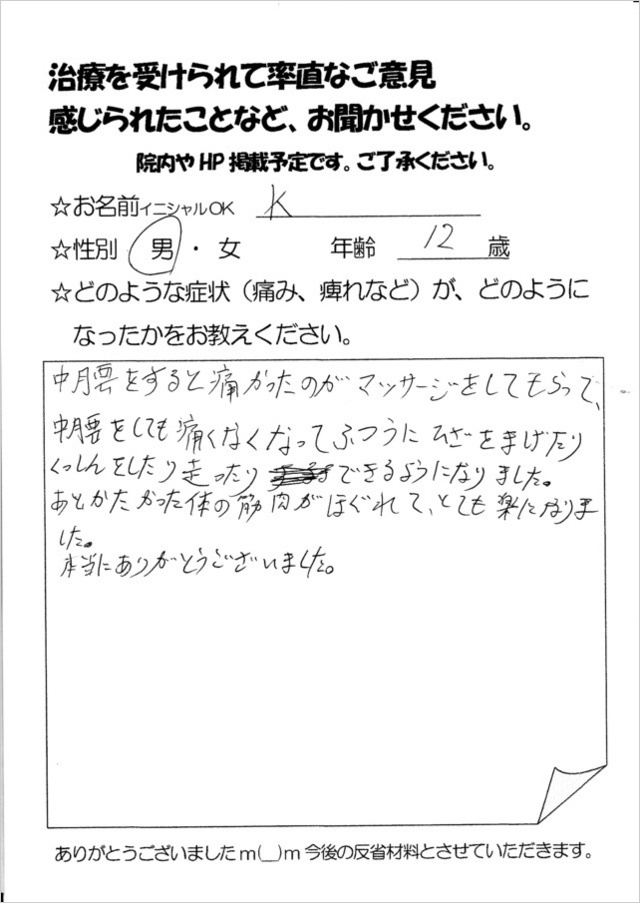 治療を受けられて率直なご意見
感じられたことなど、お聞かせください。
院内やHP掲載予定です。ご了承ください。
☆お名前イニシャルOK K
☆性別 男・女 年齢 12 歳
☆どのような症状（痛み、痺れなど）が、どのように
なったかをお教えください。
中腰をすると痛かったのがマッサージをしてもらって、
中腰をしても痛くなくなってふつうにひざをまげたり
くっしんをしたり走ったりできるようになりました。
あとかたかった体の筋肉がほぐれて、とても楽になりま
した。
本当にありがとうございました。
ありがとうございましたm(__)m今後の反省材料とさせていただきます。